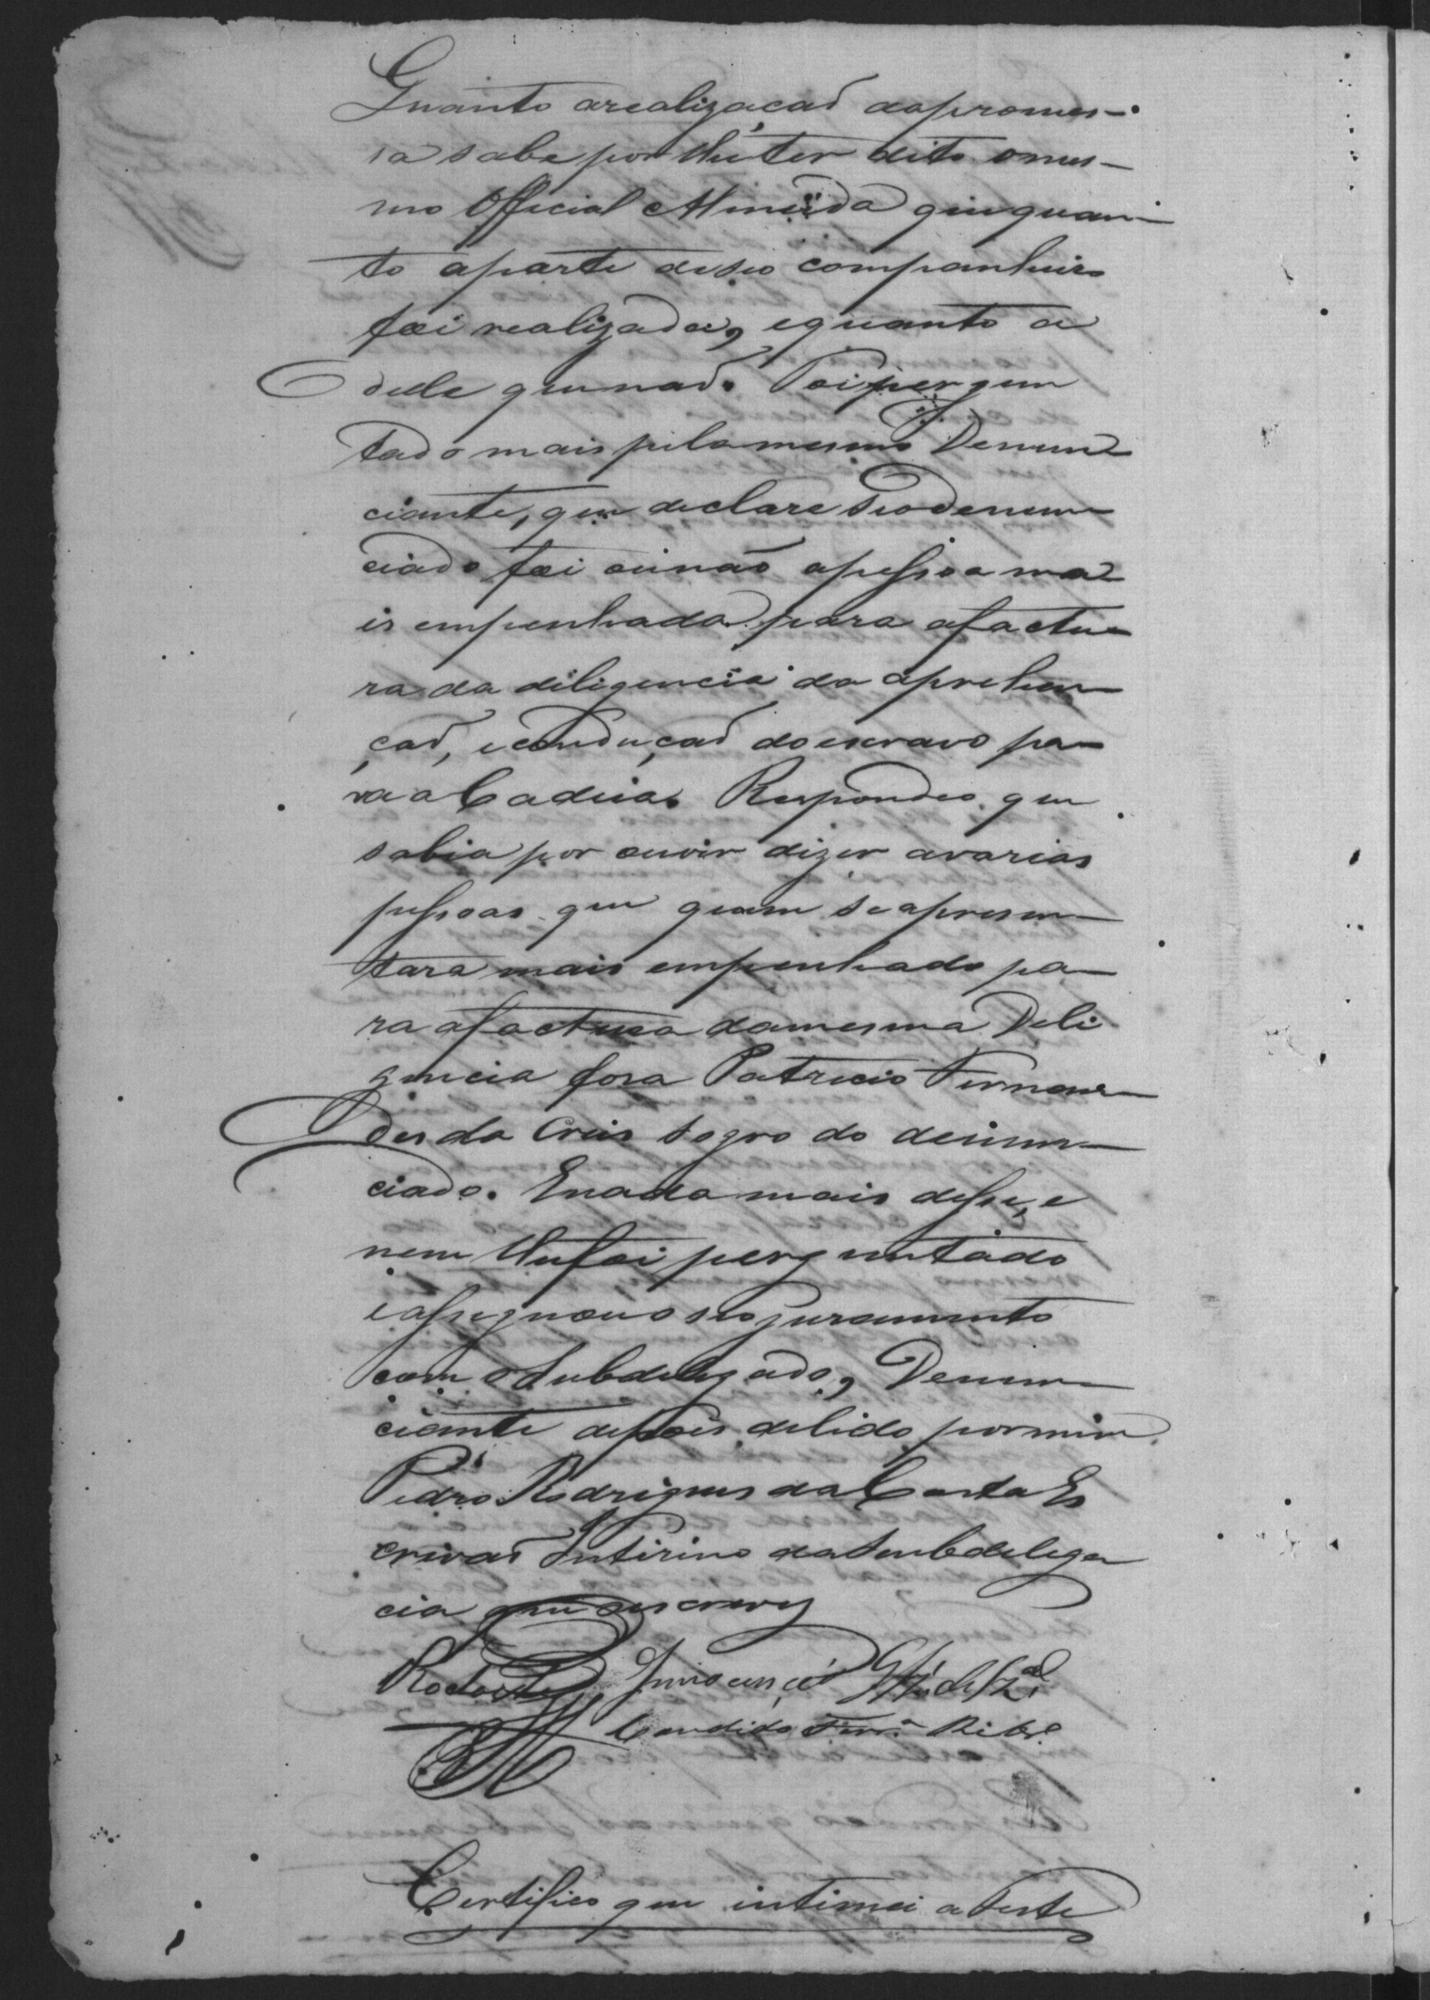 Quanto arealizaçaõ dapromes-
sa sabe por lhe ter dito omes-
mo Official Almeida que quan-
to aparte deseo companheiro
foi realizada, equanto a
delle que naõ. Foi pergun
tado mais pelo mesmo Denun
ciante, que declare seodenun
ciado foi ou não apessoa ma
is empenhada para afactu
ra da diligencia da aprehen
çaõ, econduçaõ doescravo pa
ra a Cadeia. Respondeo que
sabia por ouvir dizer avarias
pessoas que quem seapresen
tara mais empenhado pa
ra afactura damesma Deli
gencia fora Patricio Fernan
des da Crus sogro do denun
ciado. Enada mais disse, e
nem lhefoi perguntado
eassignou o seo juramento
com oSubdelegado, Denun
ciante depois delido pormim
Pedro Rodrigues da Costa Es
crivaõ Interino daSubdelega
cia que oescrevy
Innocencio
Candido Ferrª Ribrº
Certifico que intimei a Teste